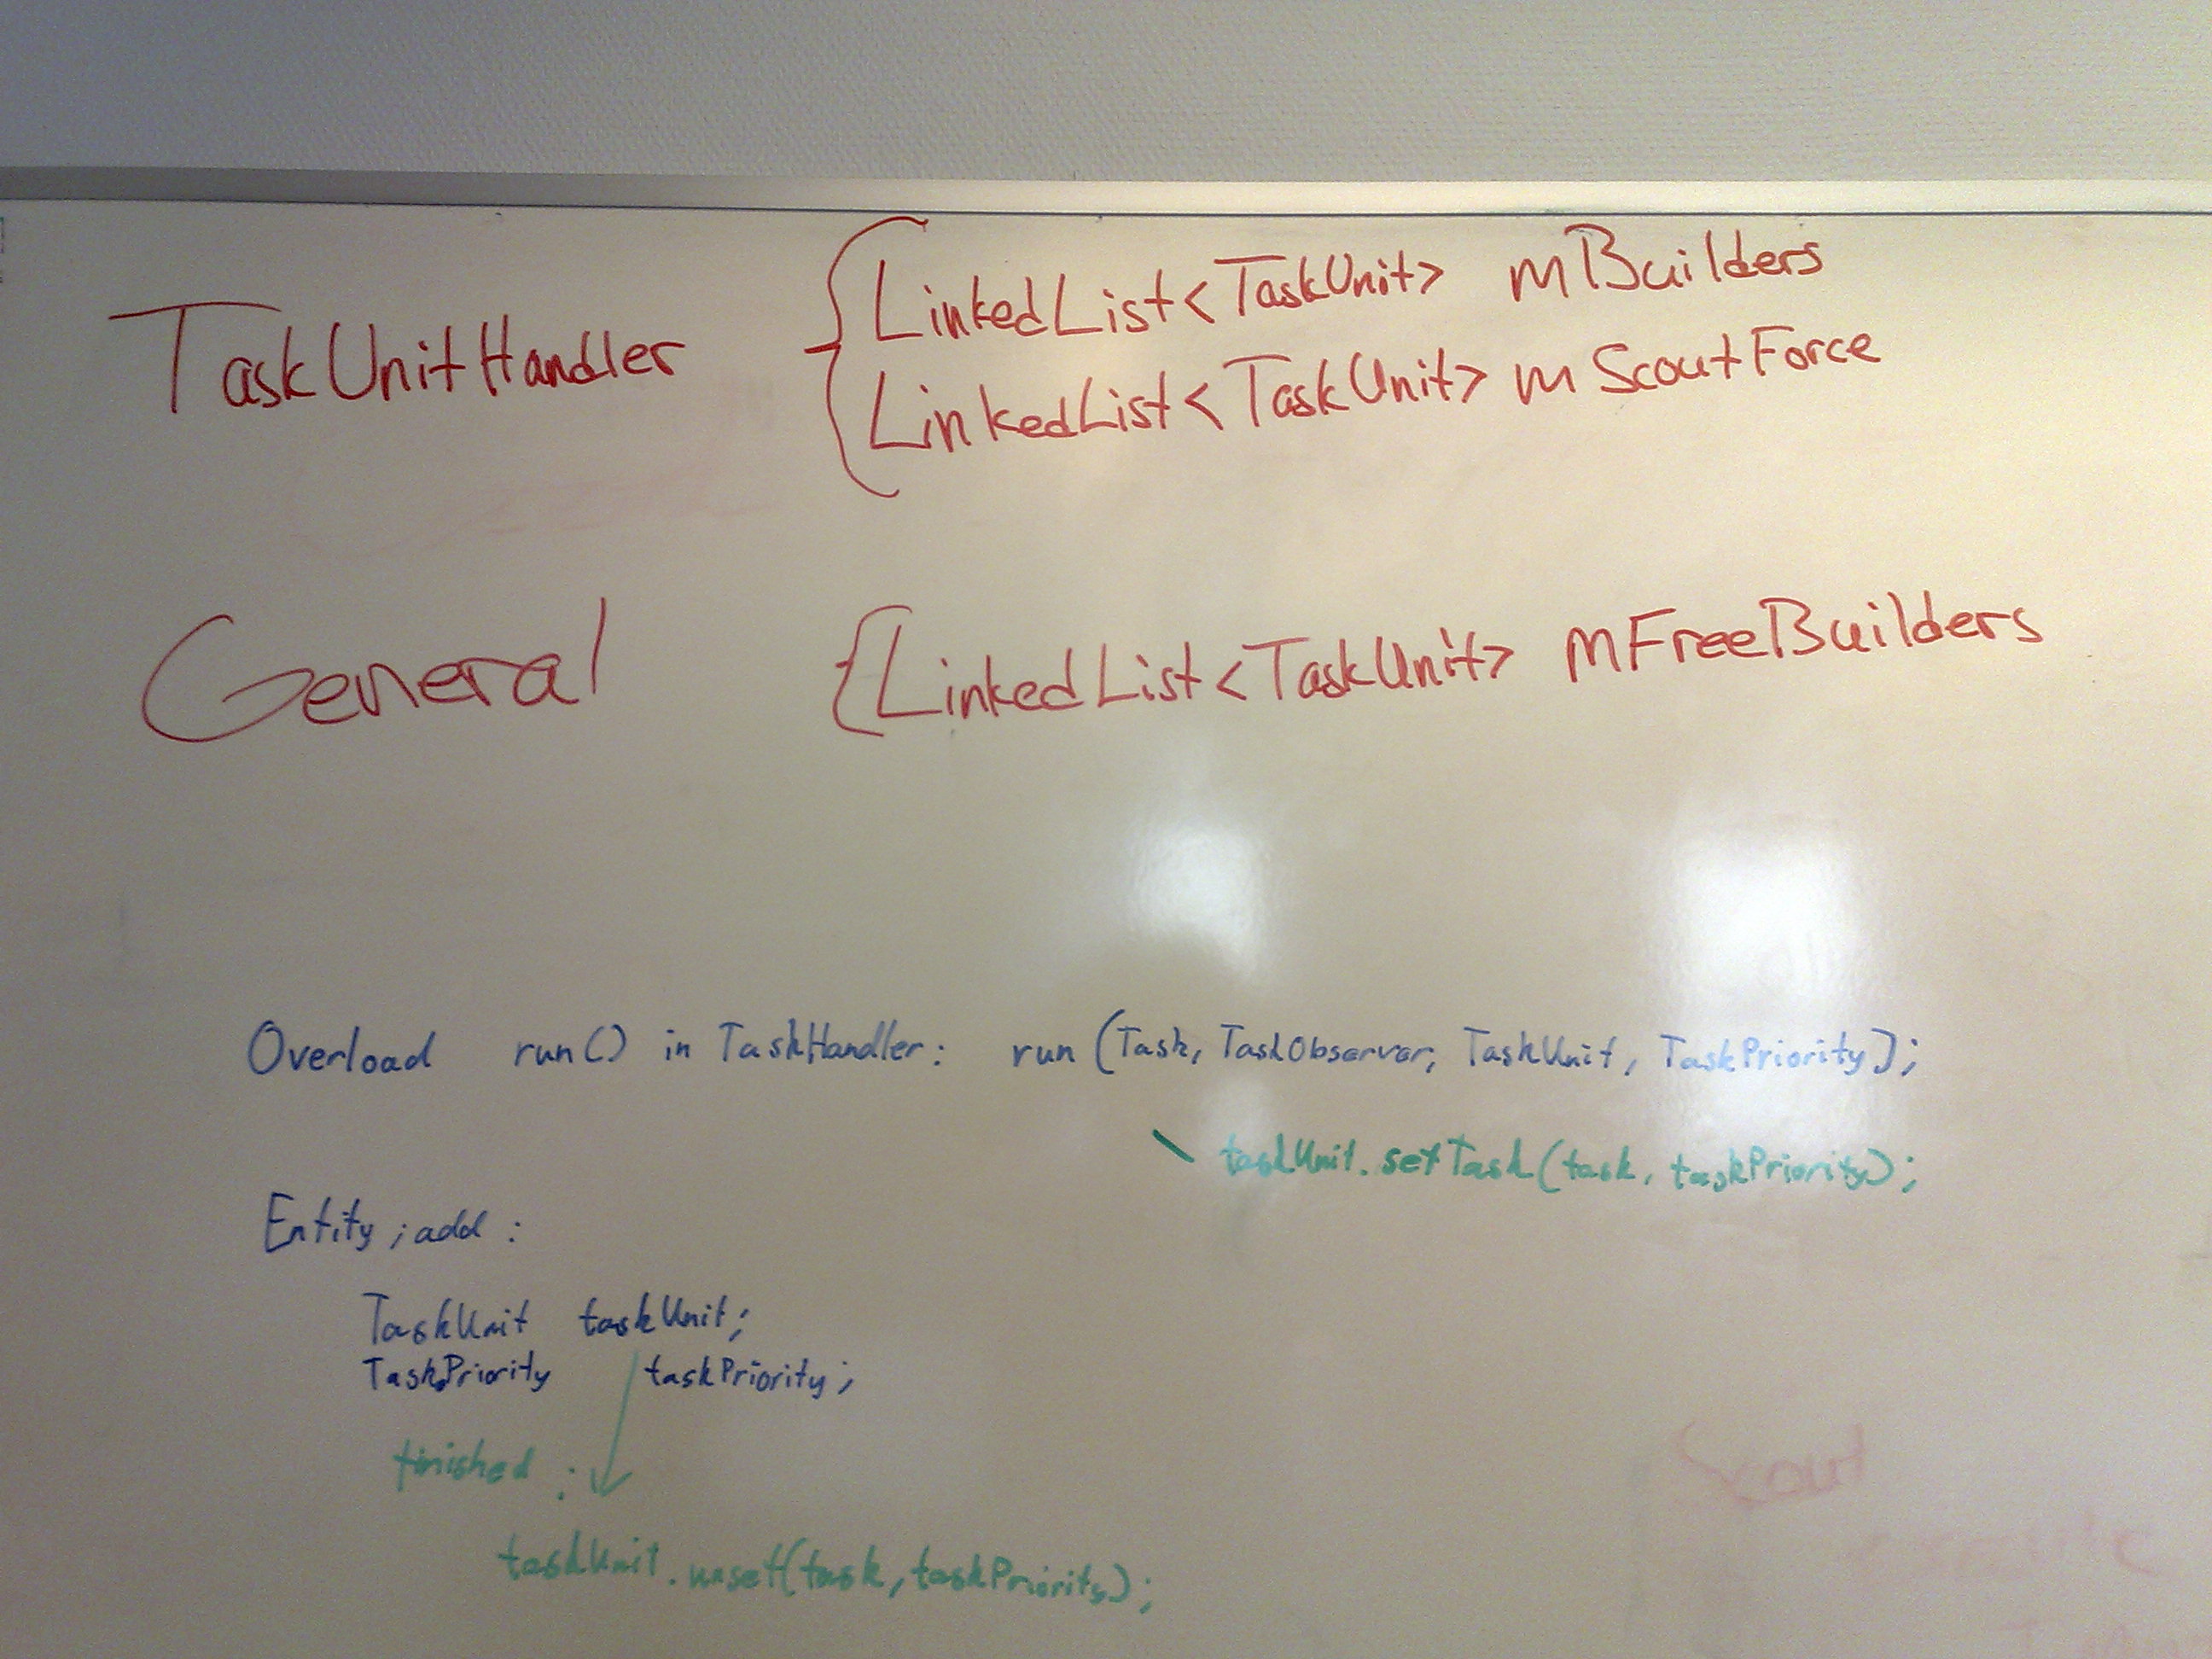 TaskUnitHandler
{LinkedList<TaskUnit> mBuilders
LinkedList<TaskUnit> mScoutForce
General {LinkedList<TaskUnit> mFreeBuilders
Overload run() in TaskHandler: run (Task, TaskObserver, TaskUnit, TaskPriority);
taskUnit.setTask(task, taskPriority);
Entity ; add :
TaskUnit taskUnit;
TaskPriority taskPriority;
finished :
taskUnit.unset(task, taskPriority);
Scout